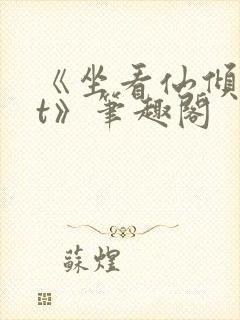 《坐看仙傾
t》筆趣閣
蘇煌